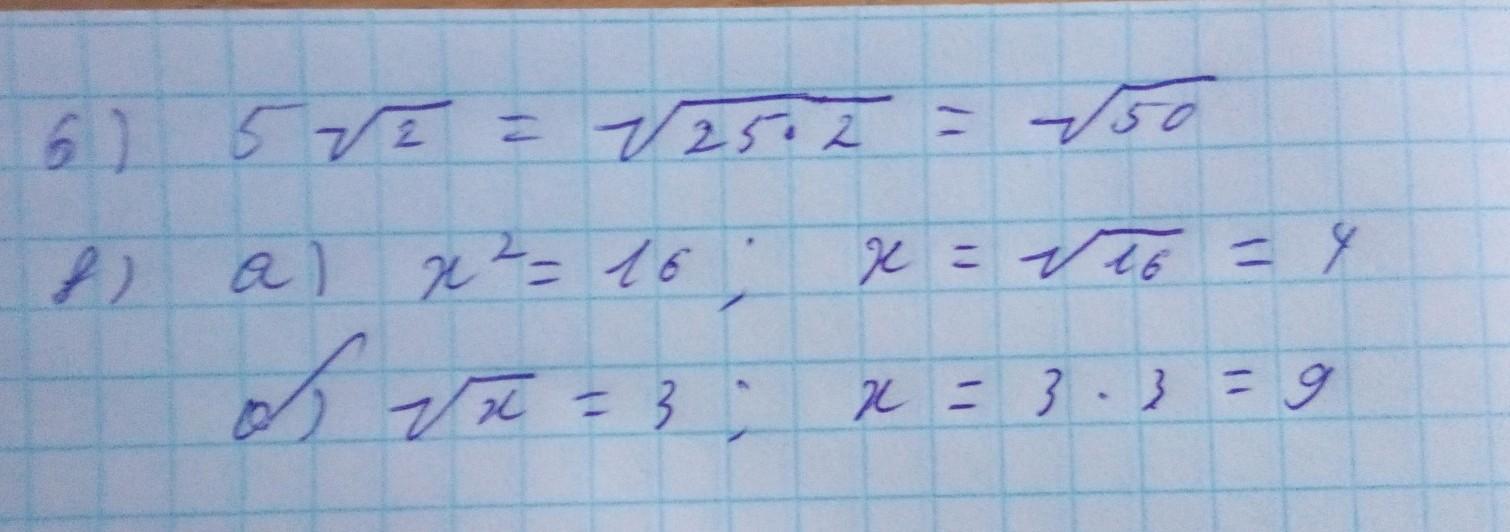 6) 5√2 = √25·2 = √50
8) а) x² = 16; x = √16 = 4
б) √x = 3; x = 3 · 3 = 9